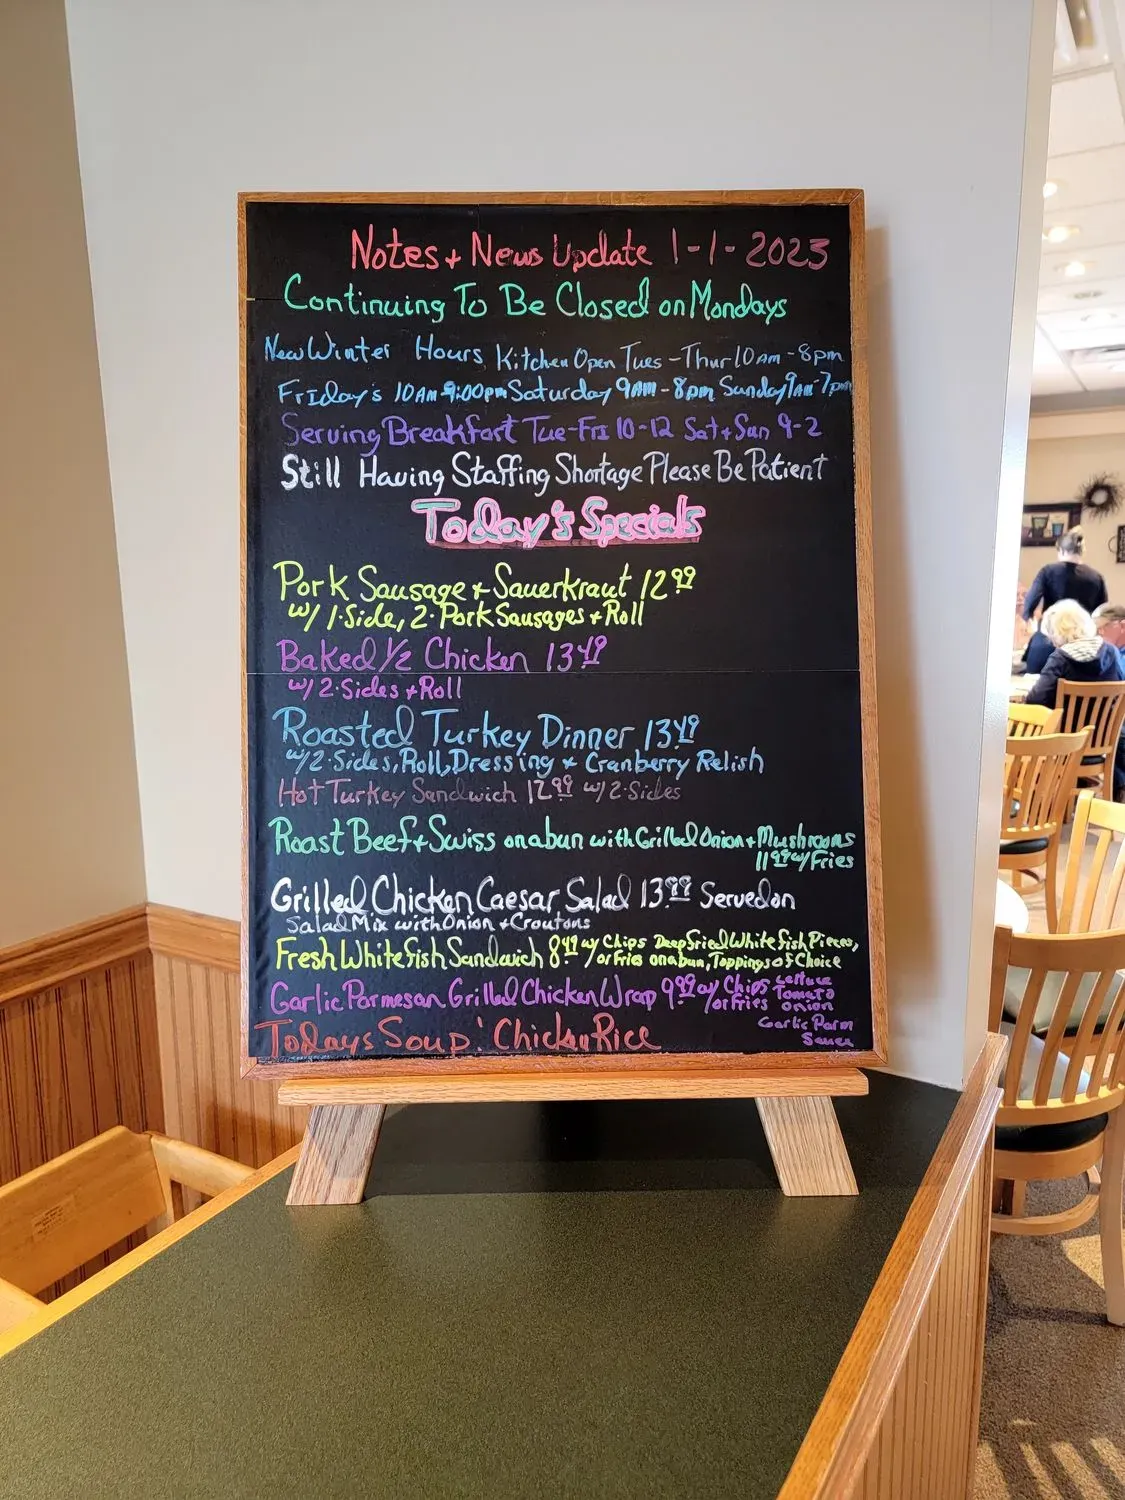 Notes + News Update 1-1-2023
Continuing To Be Closed on Mondays
New Winter Hours Kitchen Open Tues-Thur 10AM-8pm
Friday's 10AM-9:00pm Saturday 9AM-8pm Sunday 9AM-7pm
Serving Breakfast Tue-Fri 10-12 Sat+Sun 9-2
Still Having Staffing Shortage Please Be Patient
Today's Specials
Pork Sausage + Sauerkraut 12.99
w/ 1-Side, 2-Pork Sausages + Roll
Baked 1/2 Chicken 13.49
w/ 2-Sides + Roll
Roasted Turkey Dinner 13.49
w/ 2-Sides, Roll, Dressing + Cranberry Relish
Hot Turkey Sandwich 12.99 w/ 2-Sides
Roast Beef + Swiss on a bun with Grilled Onion + Mushrooms
11.99 w/ Fries
Grilled Chicken Caesar Salad 13.99 Served on
Salad Mix with Onion + Croutons
Fresh Whitefish Sandwich 8.49 w/ Chips Deep fried White fish Pieces,
or Fries on a bun, Toppings of Choice
Garlic Parmesan Grilled Chicken Wrap 9.99 w/ Chips Lettuce
or Fries Tomato
onion
Garlic Parm
Sauce
Todays Soup: Chicken Rice